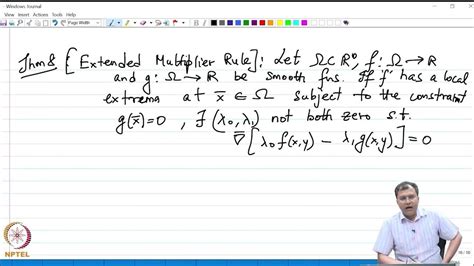 Windows Journal
Thm 8 [Extended Multiplier Rule]: Let Ω ⊂ ℝⁿ, f: Ω → ℝ
and g: Ω → ℝ be smooth fns. If f has a local
extrema at x̄ ∈ Ω subject to the constraint
g(x̄) = 0, ∃ (λ₀, λ₁) not both zero s.t.
∇̄ [λ₀ f(x,y) − λ₁ g(x,y)] = 0
NPTEL